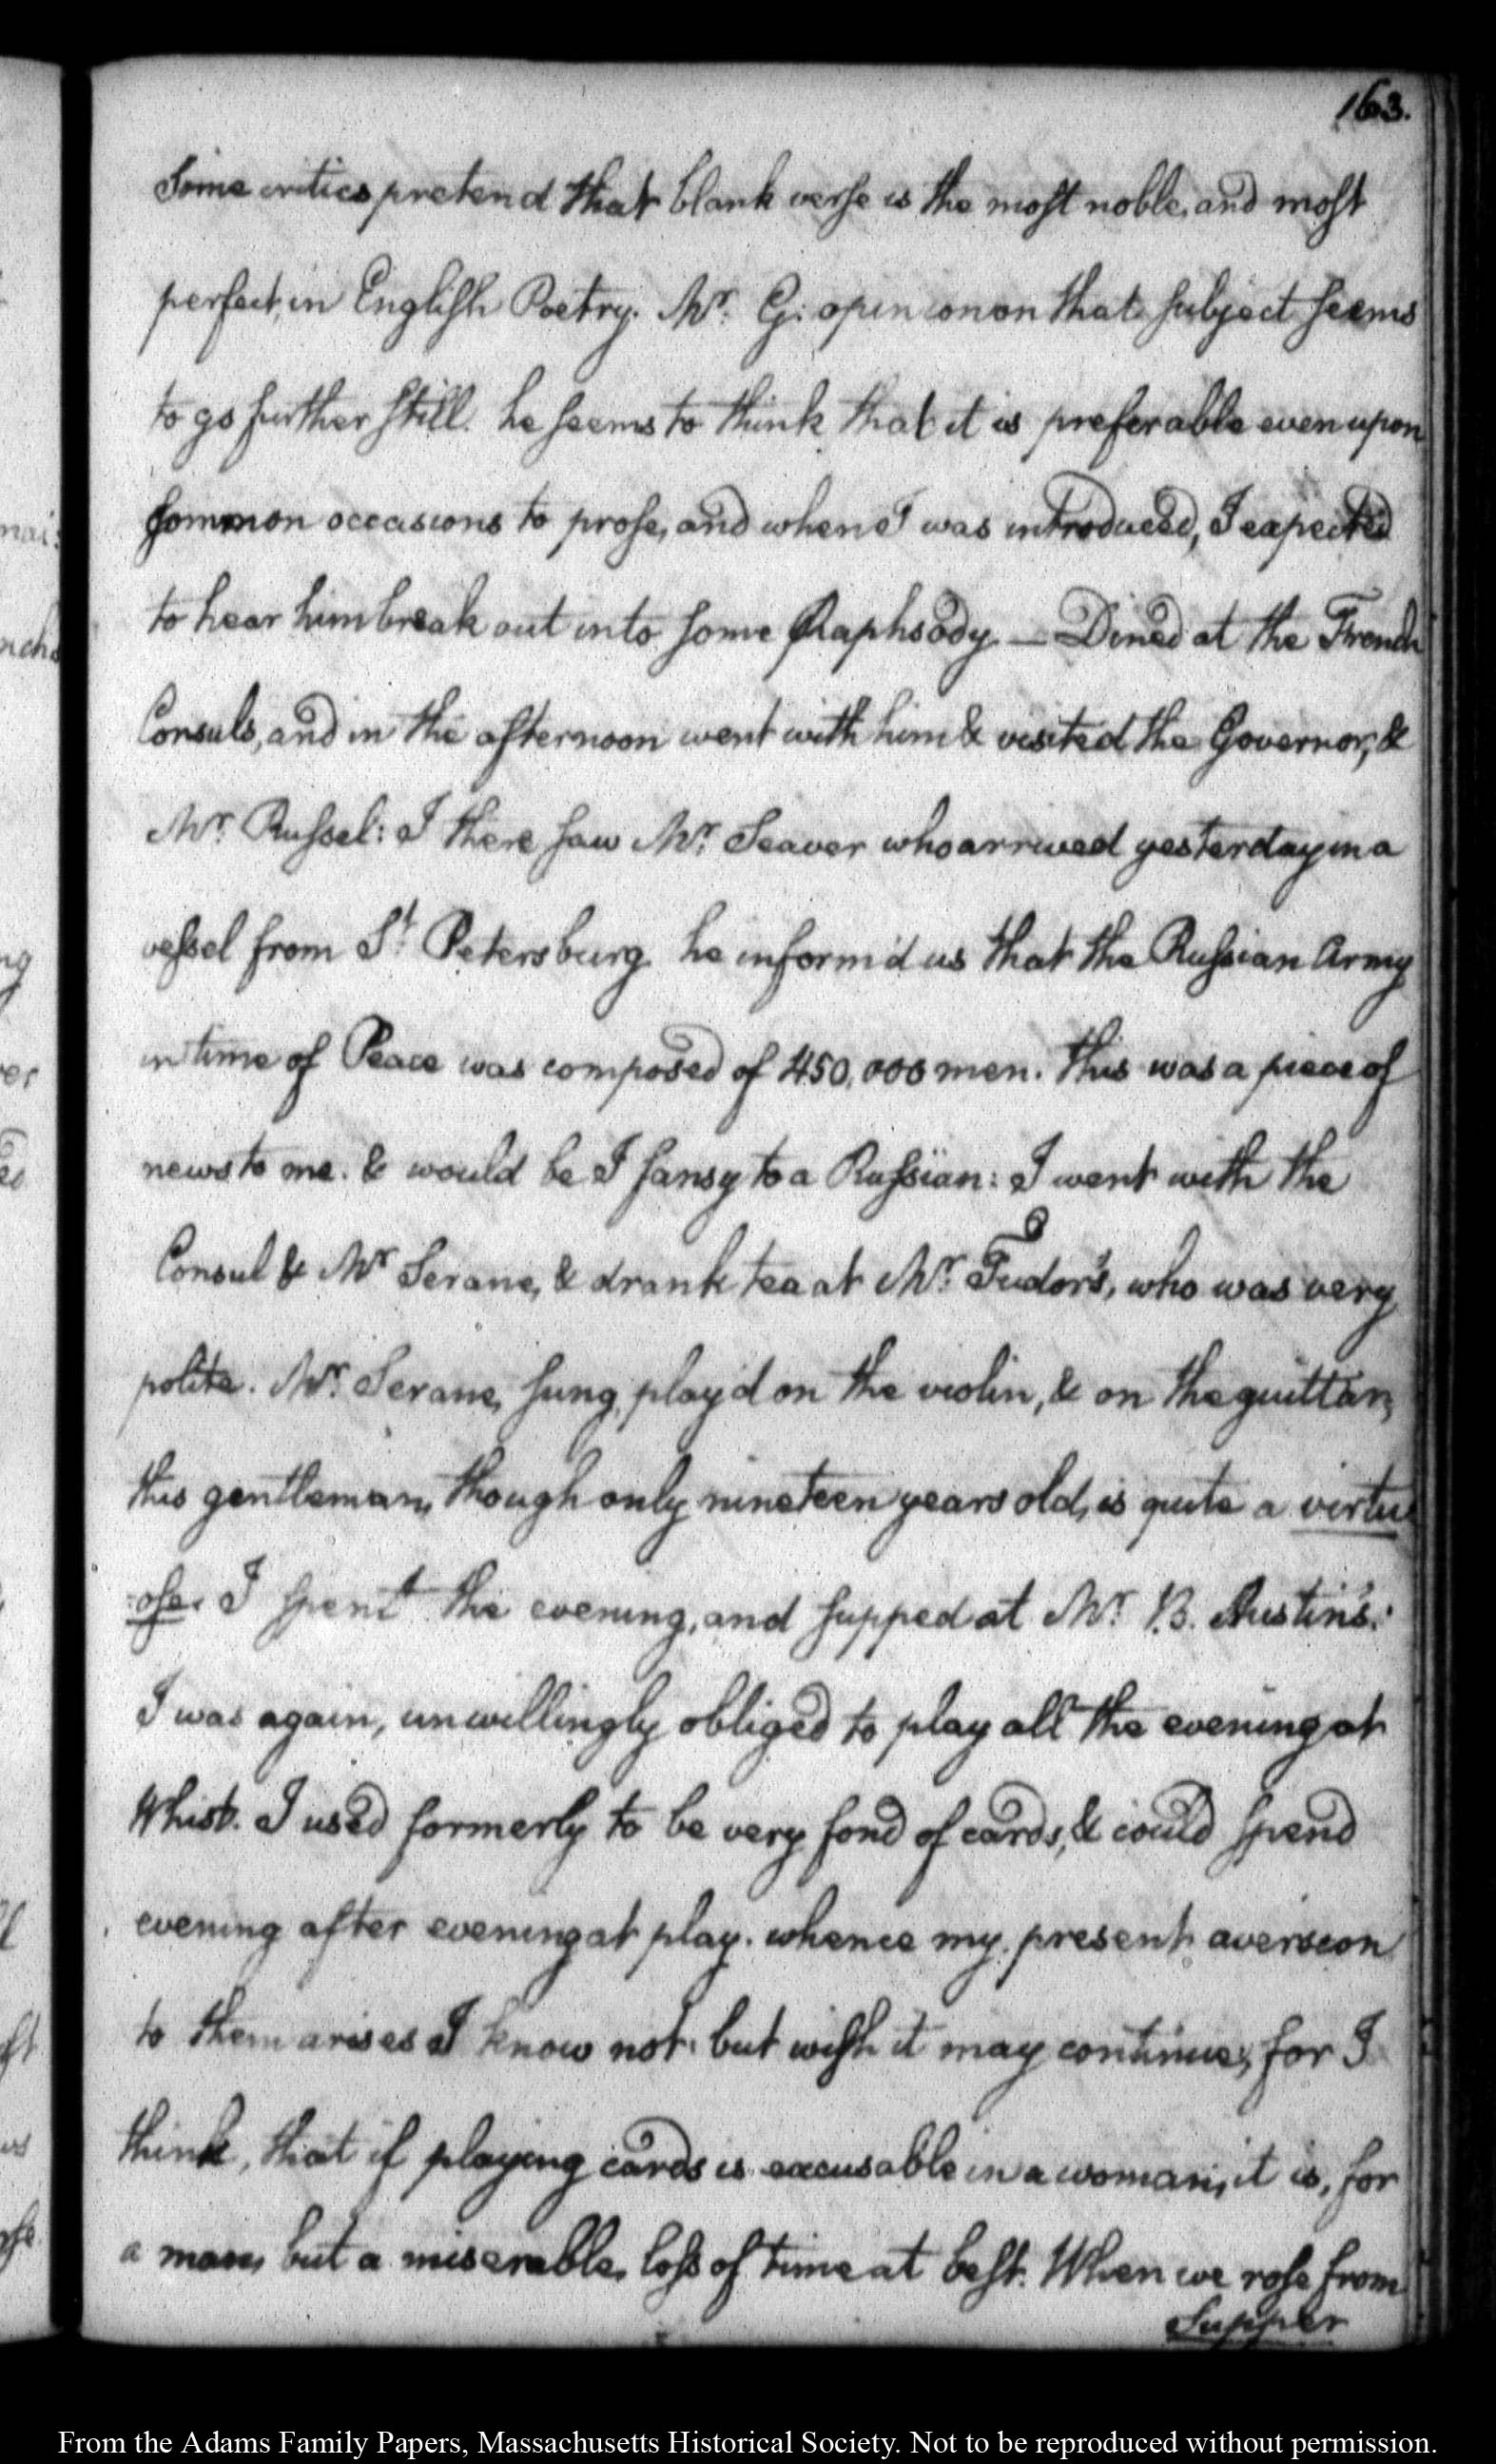 163.
Some critics pretend that blank verse is the most noble, and most
perfect, in English Poetry. Mr. G: opinion on that subject seems
to go further still. he seems to think that it is preferable even upon
common occasions to prose, and when I was introduced, I expected
to hear him break out into some Raphsody.— Dined at the French
Consuls, and in the afternoon went with him & visited the Governor, &
Mr. Russel: I there saw Mr. Seaver who arrived yesterday in a
vessel from St. Petersburg. he inform'd us that the Russian Army
in time of Peace was composed of 450,000 men. this was a piece of
news to me. & would be I fansy to a Russian: I went with the
Consul & Mr Serane, & drank tea at Mr. Tudor's, who was very
polite. Mr. Serane, sung, play'd on the violin, & on the guittar,
this gentleman, though only nineteen years old, is quite a virtu
:ose. I spent the evening, and supped at Mr. B. Austin's:
I was again, unwillingly obliged to play all the evening at
Whist. I used formerly to be very fond of cards, & could spend
evening after evening at play. whence my present aversion
to them arises I know not. but wish it may continue; for I
think, that if playing cards is excusable in a woman, it is, for
a man, but a miserable, loss of time at best. When we rose from
Supper
From the Adams Family Papers, Massachusetts Historical Society. Not to be reproduced without permission.